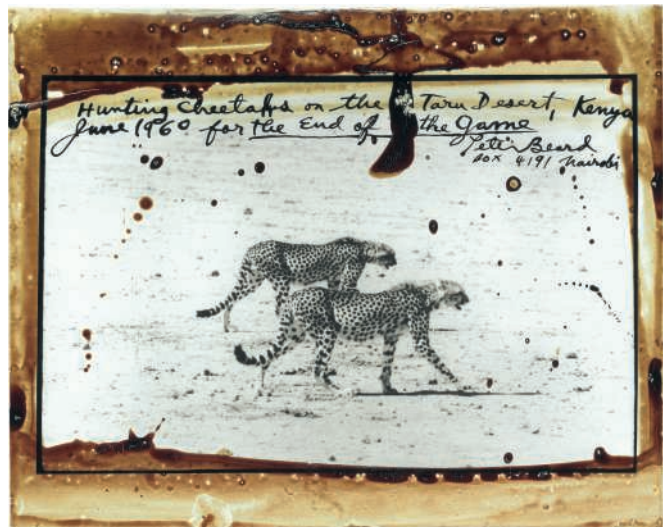 Hunting Cheetahs on the Taru Desert, Kenya
June 1960 for the End of the Game
Peter Beard
Box 4191 Nairobi